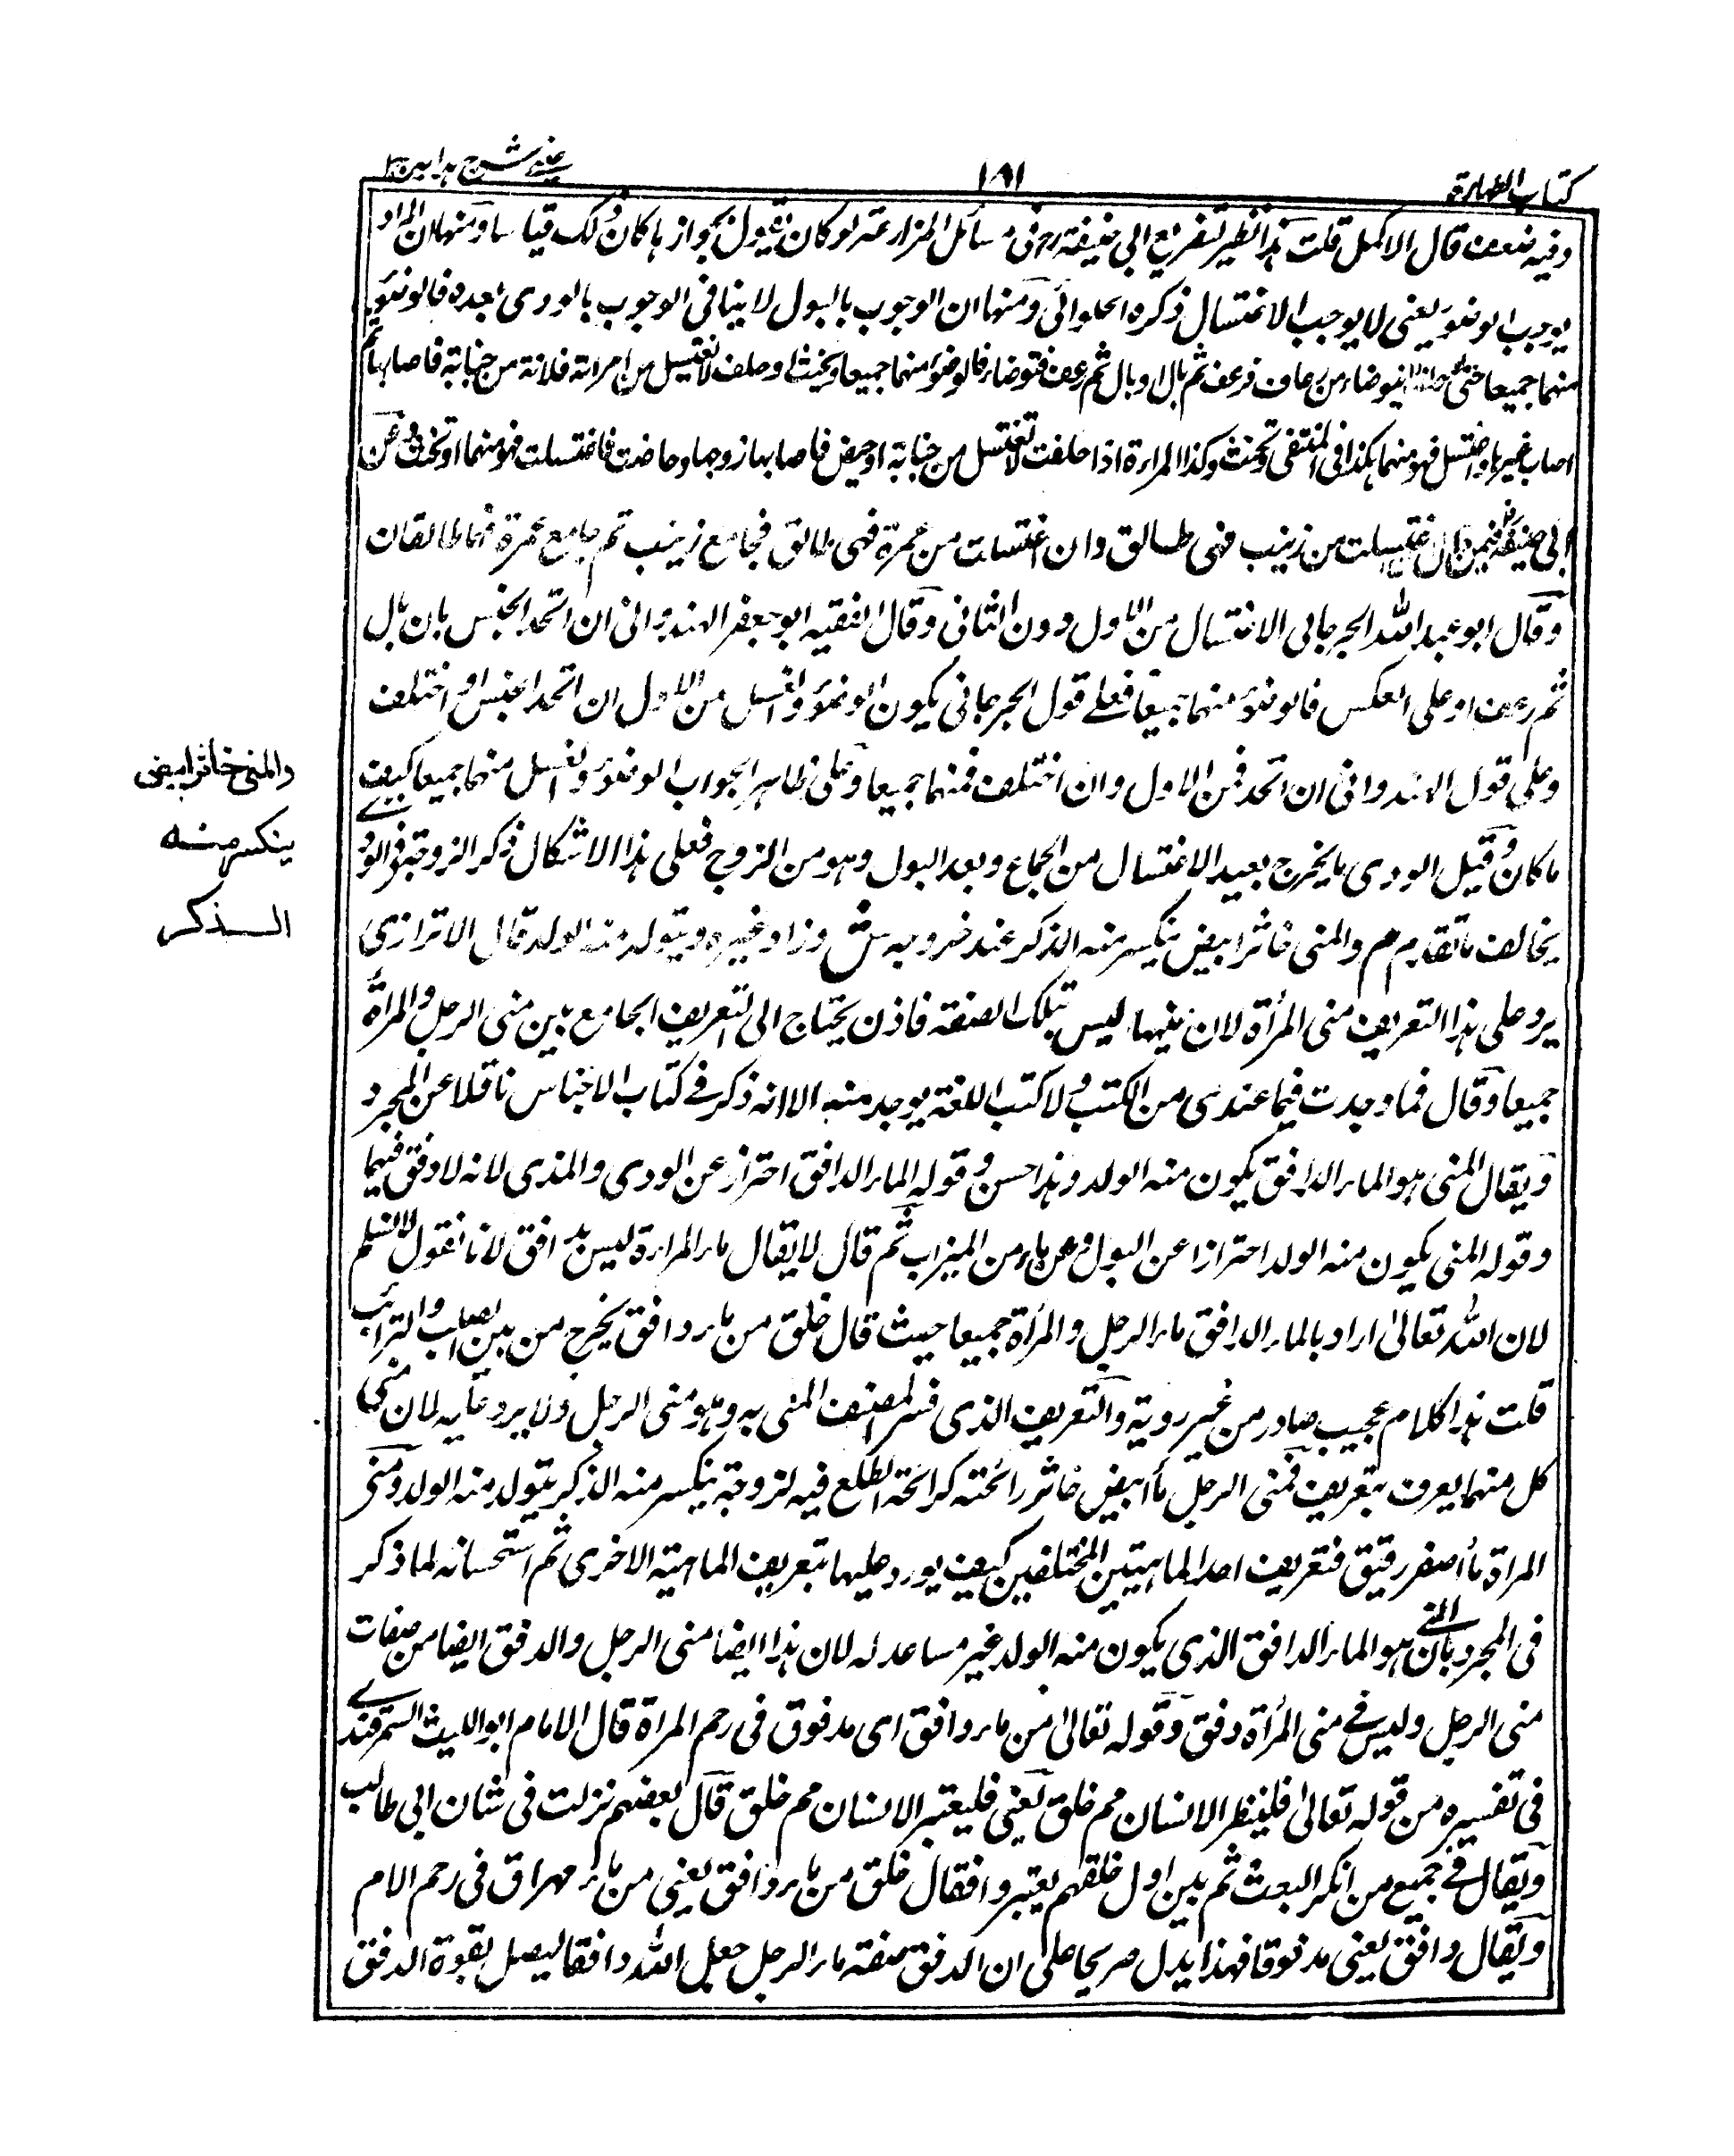 كتاب الطهارة
١٨١
عينى شرح هداية ج١
وفيه ضعف قال الاكمل قلت هذا نظير تفريع ابى حنيفة رح فى مسائل المزارعة لو كان يقول بجوازها كان ذلك قياسا ومنها ان المراد
يوجب الوضوء يعنى لا يوجب الاغتسال ذكره الحلوائى ومنها ان الوجوب بالبول لا ينافى الوجوب بالودى بعده فالوضوء
منهما جميعا حتى لو حلف لا يتوضاء من رعاف فرعف ثم بال او بال ثم رعف فتوضاء فالوضوء منهما جميعا ويحنث او حلف لا يغتسل من امراته فلانة من جنابة فاصابها ثم
اصاب غيرها واغتسل فهو منهما هكذا فى المنتقى وتحنث وكذا المراءة اذا حلفت لا تغتسل من جنابة او حيض فاصابها زوجها وحاضت فاغتسلت فهو منهما او تحنث وعن
ابى حنيفة فيمن قال ان اغتسلت من زينب فهى طالق وان اغتسلت من عمرة فهى طالق فجامع زينب ثم جامع عمرة فهما طالقان
وقال ابو عبد الله الجرجانى الاغتسال من الاول دون الثانى وقال الفقيه ابو جعفر الهندوانى ان اتحد الجنس بان بال
ثم رعف او على العكس فالوضوء منهما جميعا فعلى قول الجرجانى يكون الوضوء والغسل من الاول ان اتحد الجنس او اختلف
وعلى قول الهندوانى ان اتحد فمن الاول وان اختلف فمنهما جميعا وعلى ظاهر الجواب الوضوء والغسل منهما جميعا كيف
ما كان وقيل الودى ما يخرج بعد الاغتسال من الجماع وبعد البول وهو من الزوج فعلى هذا الاشكال ذكر الزوجة فى الودى
يخالف ما تقدم م والمنى خاثر ابيض ينكسر منه الذكر عند خروجه ش وزاد غيره ويتولد منه الولد قال الاترازى
يرد على هذا التعريف منى المرأة لان منيها ليس بتلك الصفة فاذن يحتاج الى التعريف الجامع بين منى الرجل والمرأة
جميعا وقال فما وجدت فيما عندى من الكتب ولا كتب اللغة يوجد منه الا انه ذكر فى كتاب الاجناس ناقلا عن المجرد
ويقال المنى هو الماء الدافق يكون منه الولد وهذا حسن وقوله الماء الدافق احتراز عن الودى والمذى لانه لا دفق فيهما
وقوله المنى يكون منه الولد احترازا عن البول وعن ماء من الميزاب ثم قال لا يقال ماء المراءة ليس بدافق لانا نقول لا نسلم
لان الله تعالى اراد بالماء الدافق ماء الرجل والمرأة جميعا حيث قال خلق من ماء دافق يخرج من بين الصلب والترائب
قلت هذا كلام عجيب صادر من غير روية والتعريف الذى فسر المصنف المنى به وهو منى الرجل ولا يرد عليه لان منى
كل منهما يعرف بتعريف فمنى الرجل ماء ابيض خاثر رائحته كرائحة الطلع فيه لزوجة ينكسر منه الذكر يتولد منه الولد ومنى
المراة ماء اصفر رقيق فتعريف احد الماهيتين المختلفين كيف يورد عليها بتعريف الماهية الاخرى ثم استحسانه لما ذكر
فى المجرد بان المنى هو الماء الدافق الذى يكون منه الولد غير مساعد له لان هذا ايضا منى الرجل والدفق ايضا من صفات
منى الرجل وليس فى منى المرأة دفق وقوله تعالى من ماء دافق اى مدفوق فى رحم المراة قال الامام ابو الليث السمرقندى
فى تفسيره من قوله تعالى فلينظر الانسان مم خلق يعنى فليعتبر الانسان مم خلق قال بعضهم نزلت فى شان ابى طالب
ويقال فى جميع من انكر البعث ثم بين اول خلقهم يعتبروا فقال خلق من ماء دافق يعنى من ماء مهراق فى رحم الام
ويقال دافق يعنى مدفوقا فهذا يدل صريحا على ان الدفق صفة ماء الرجل جعل الله دافقا ليصل بقوة الدفق
والمنى خاثر ابيض
ينكسر منه
الذكر